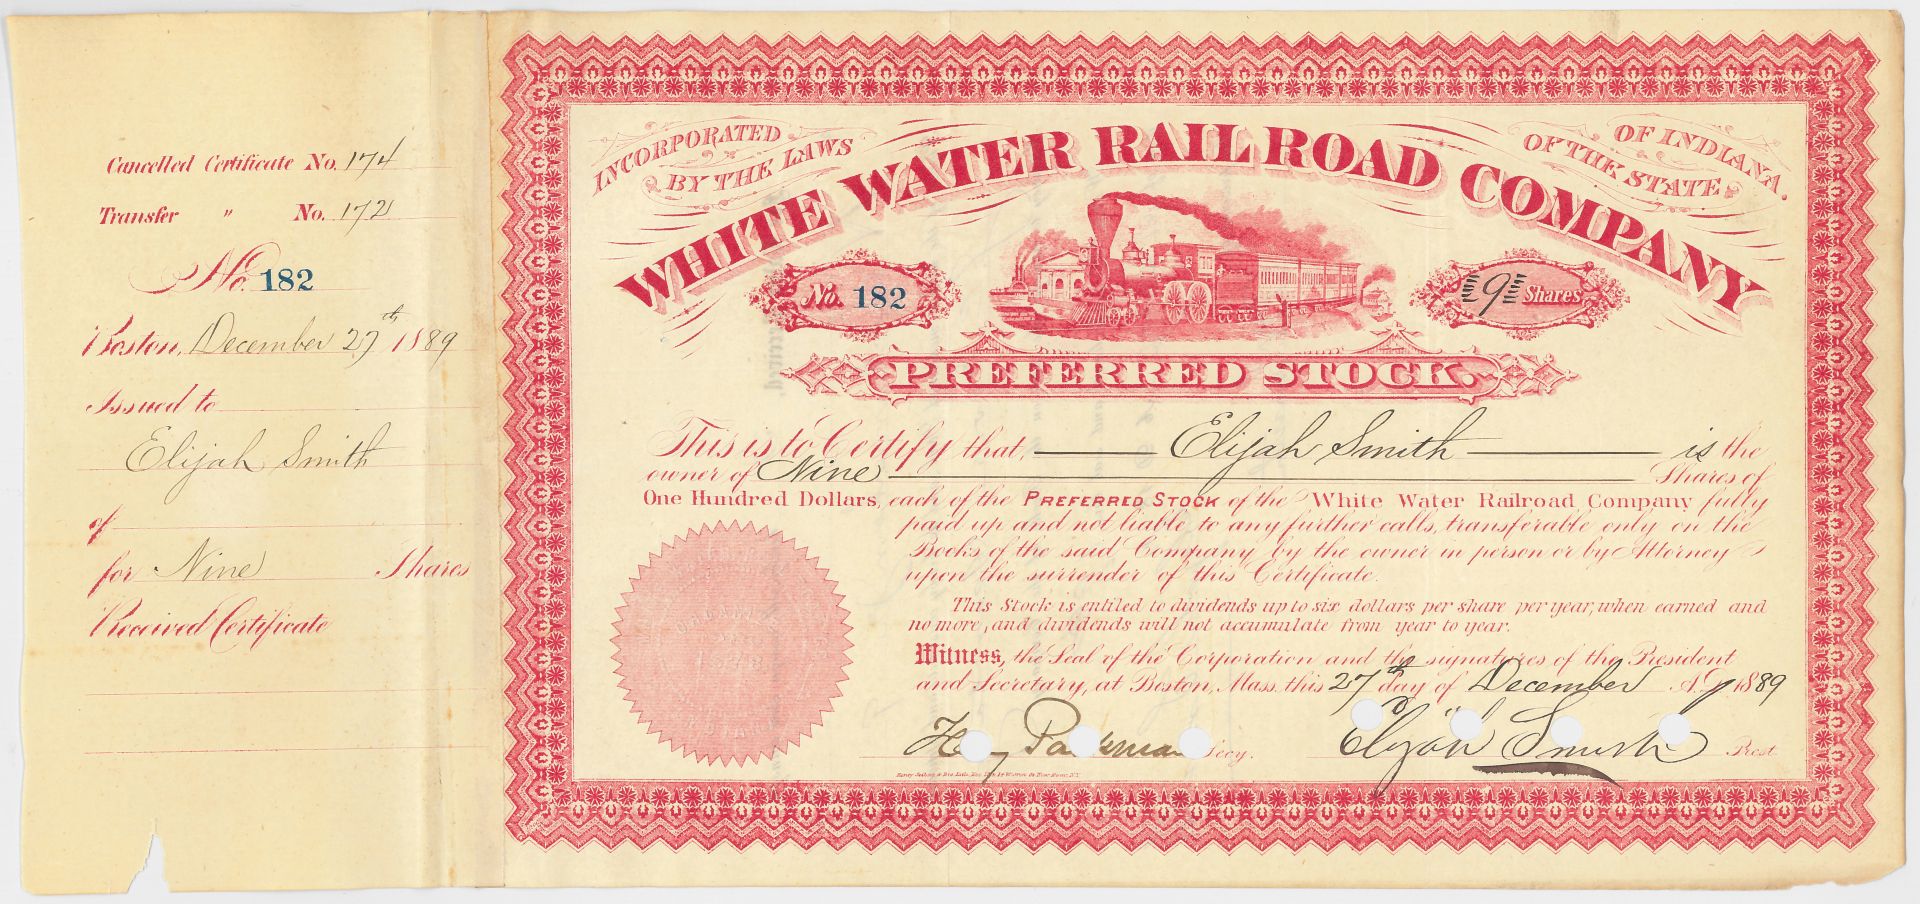 Cancelled Certificate No. 174
Transfer " No. 172
No. 182
Boston, December 27th 1889
Issued to
Elijah Smith
of
for Nine Shares
Received Certificate
INCORPORATED
BY THE LAWS
OF THE STATE
OF INDIANA.
WHITE WATER RAIL ROAD COMPANY
No. 182
"9" Shares
PREFERRED STOCK.
This is to Certify that, Elijah Smith is the
owner of Nine Shares of
One Hundred Dollars, each of the PREFERRED STOCK of the White Water Railroad Company fully
paid up and not liable to any further calls, transferable only on the
Books of the said Company by the owner in person or by Attorney
upon the surrender of this Certificate.
This Stock is entitled to dividends up to six dollars per share per year, when earned and
no more, and dividends will not accumulate from year to year.
Witness, the Seal of the Corporation and the signatures of the President
and Secretary, at Boston, Mass. this 27th day of December A.D. 1889
Henry Parkman Secy.
Elijah Smith Prest.